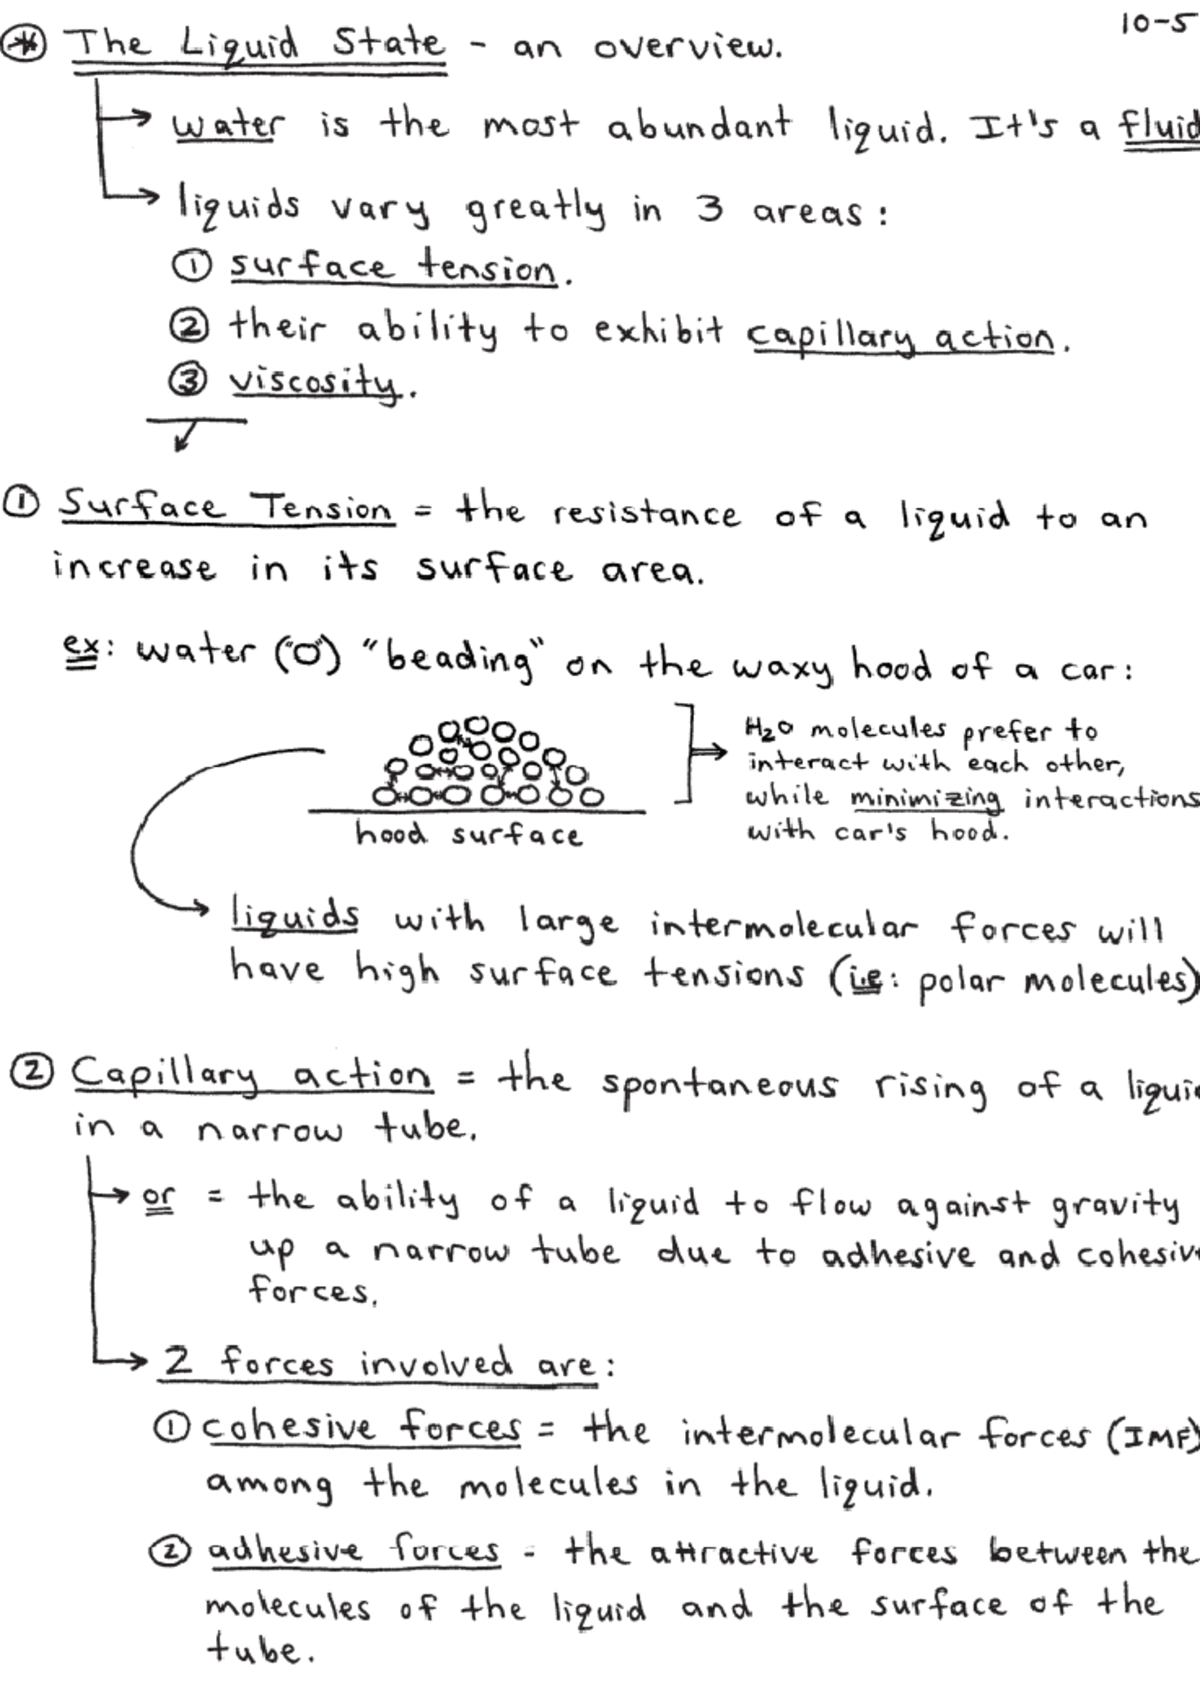 10-5
* The Liquid State - an overview.
water is the most abundant liquid. It's a fluid
liquids vary greatly in 3 areas:
① surface tension.
② their ability to exhibit capillary action.
③ viscosity.
① Surface Tension = the resistance of a liquid to an
increase in its surface area.
ex: water ("O") "beading" on the waxy hood of a car:
H₂O molecules prefer to
interact with each other,
while minimizing interactions
with car's hood.
hood surface
liquids with large intermolecular forces will
have high surface tensions (i.e: polar molecules)
② Capillary action = the spontaneous rising of a liqui
in a narrow tube.
or = the ability of a liquid to flow against gravity
up a narrow tube due to adhesive and cohesive
forces.
2 forces involved are:
① cohesive forces = the intermolecular forces (IMF)
among the molecules in the liquid.
② adhesive forces - the attractive forces between the
molecules of the liquid and the surface of the
tube.